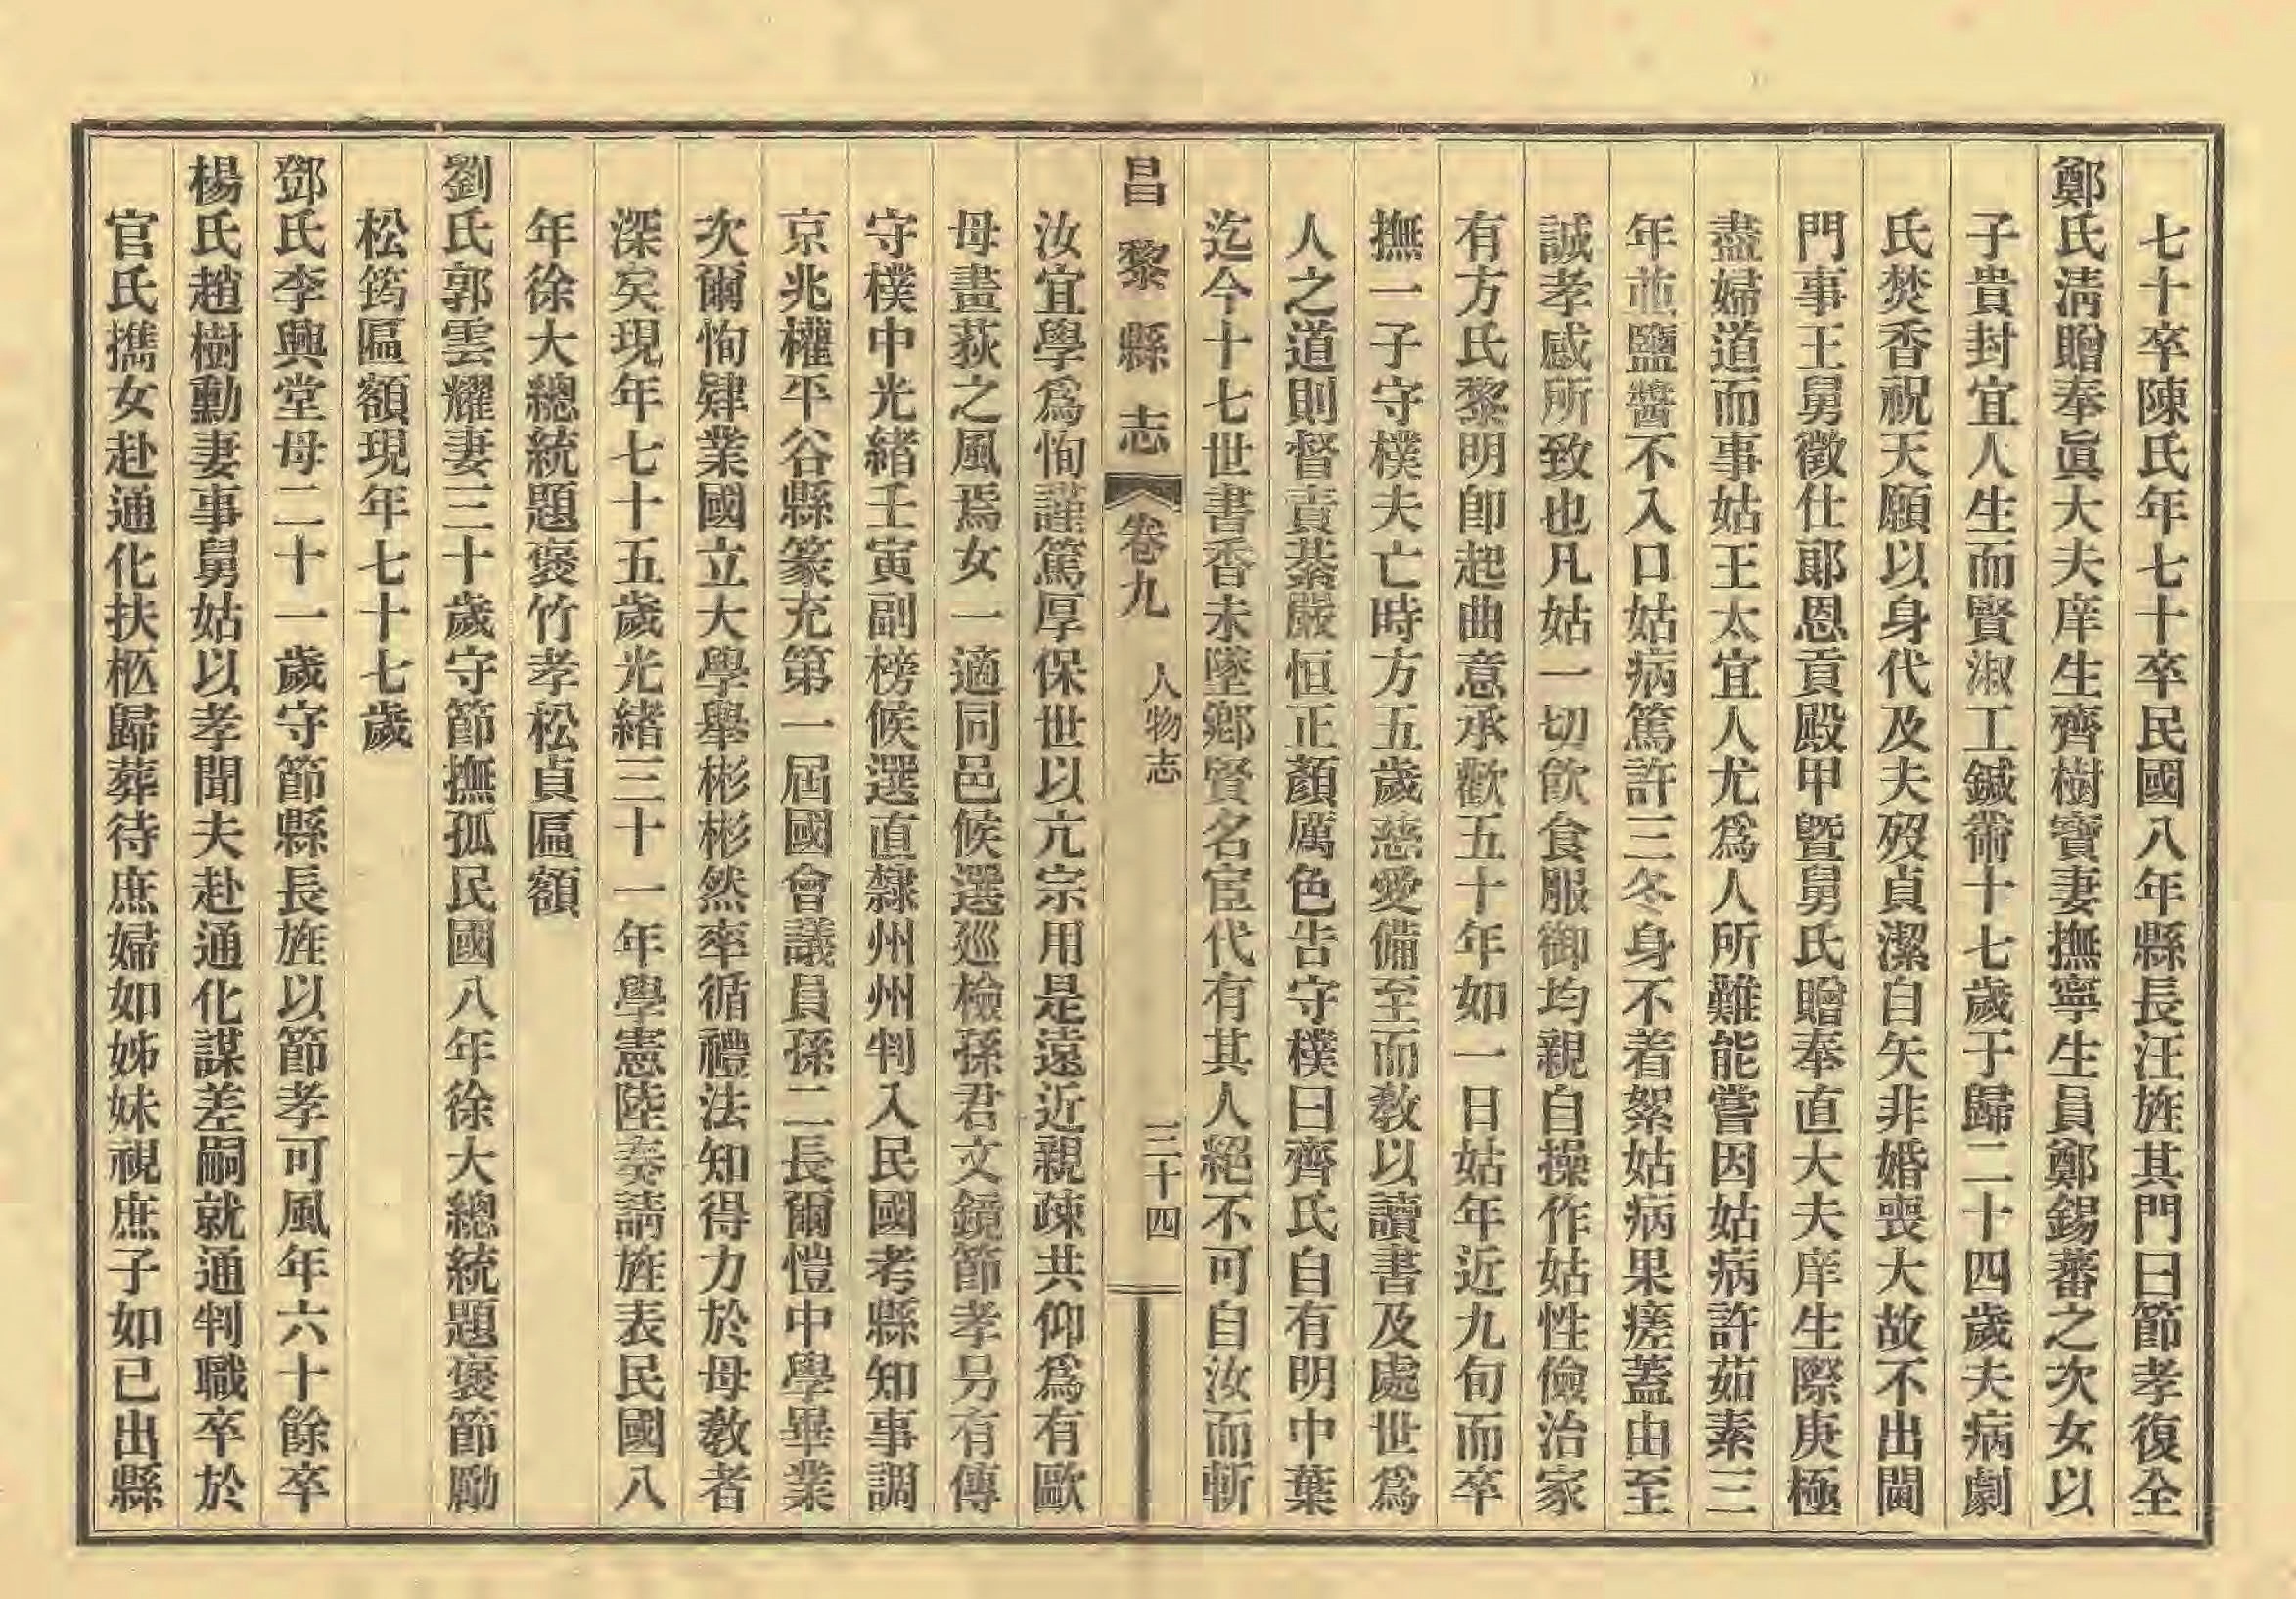 七十卒陳氏年七十卒民國八年縣長汪旌其門曰節孝復全
鄭氏淸贈奉眞大夫庠生齊樹寶妻撫寧生員鄭錫蕃之次女以
子貴封宜人生而賢淑工鍼黹十七歲于歸二十四歲夫病劇
氏焚香祝天願以身代及夫歿貞潔自矢非婚喪大故不出閫
門事王舅徵仕郎恩貢殿甲曁舅氏贈奉直大夫庠生際庚極
盡婦道而事姑王太宜人尤爲人所難能嘗因姑病許茹素三
年並鹽醬不入口姑病篤許三冬身不着絮姑病果瘥蓋由至
誠孝感所致也凡姑一切飮食服御均親自操作姑性儉治家
有方氏黎明卽起曲意承歡五十年如一日姑年近九旬而卒
撫一子守樸夫亡時方五歲慈愛備至而敎以讀書及處世爲
人之道則督責綦嚴恒正顏厲色告守樸曰齊氏自有明中葉
迄今十七世書香未墜鄕賢名宦代有其人絕不可自汝而斬
昌黎縣志 卷九 人物志 三十四
汝宜學爲恂謹篤厚保世以亢宗用是遠近親疎共仰爲有歐
母畫荻之風焉女一適同邑候選巡檢孫君文鏡節孝另有傳
守樸中光緖壬寅副榜候選直隸州州判入民國考縣知事調
京兆權平谷縣篆充第一屆國會議員孫二長爾愷中學畢業
次爾恂肄業國立大學舉彬彬然率循禮法知得力於母敎者
深矣現年七十五歲光緖三十一年學憲陸奏請旌表民國八
年徐大總統題褒竹孝松貞匾額
劉氏郭雲耀妻三十歲守節撫孤民國八年徐大總統題褒節勵
松筠匾額現年七十七歲
鄧氏李興堂母二十一歲守節縣長旌以節孝可風年六十餘卒
楊氏趙樹勳妻事舅姑以孝聞夫赴通化謀差嗣就通判職卒於
官氏攜女赴通化扶柩歸葬待庶婦如姊妹視庶子如已出縣